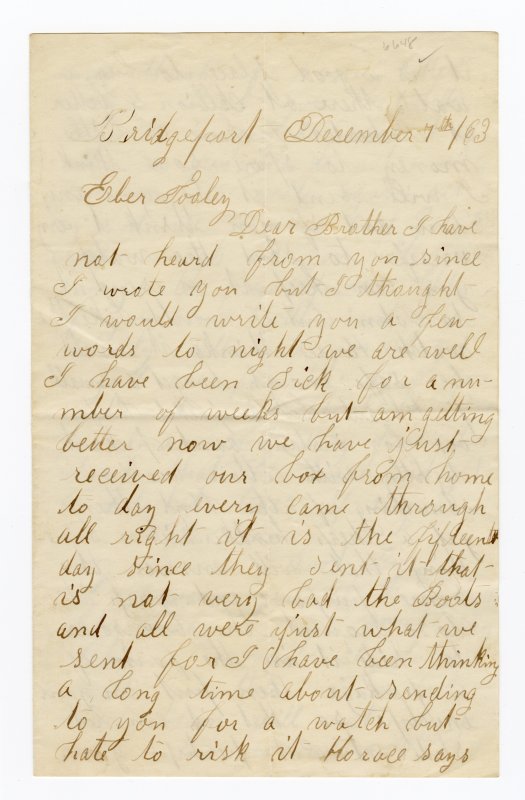 6648
Bridgeport December 7th /63
Eber Tooley
Dear Brother I have
not heard from you since
I wrote you but I thought
I would write you a few
words to night we are well
I have been sick for a nu-
mber of weeks but am getting
better now we have just
received our box from home
to day every came through
all right it is the fifteenth
day since they sent it that
is not very bad the Boots
and all were just what we
sent for I have been thinking
a long time about sending
to you for a watch but
hate to risk it Horace says